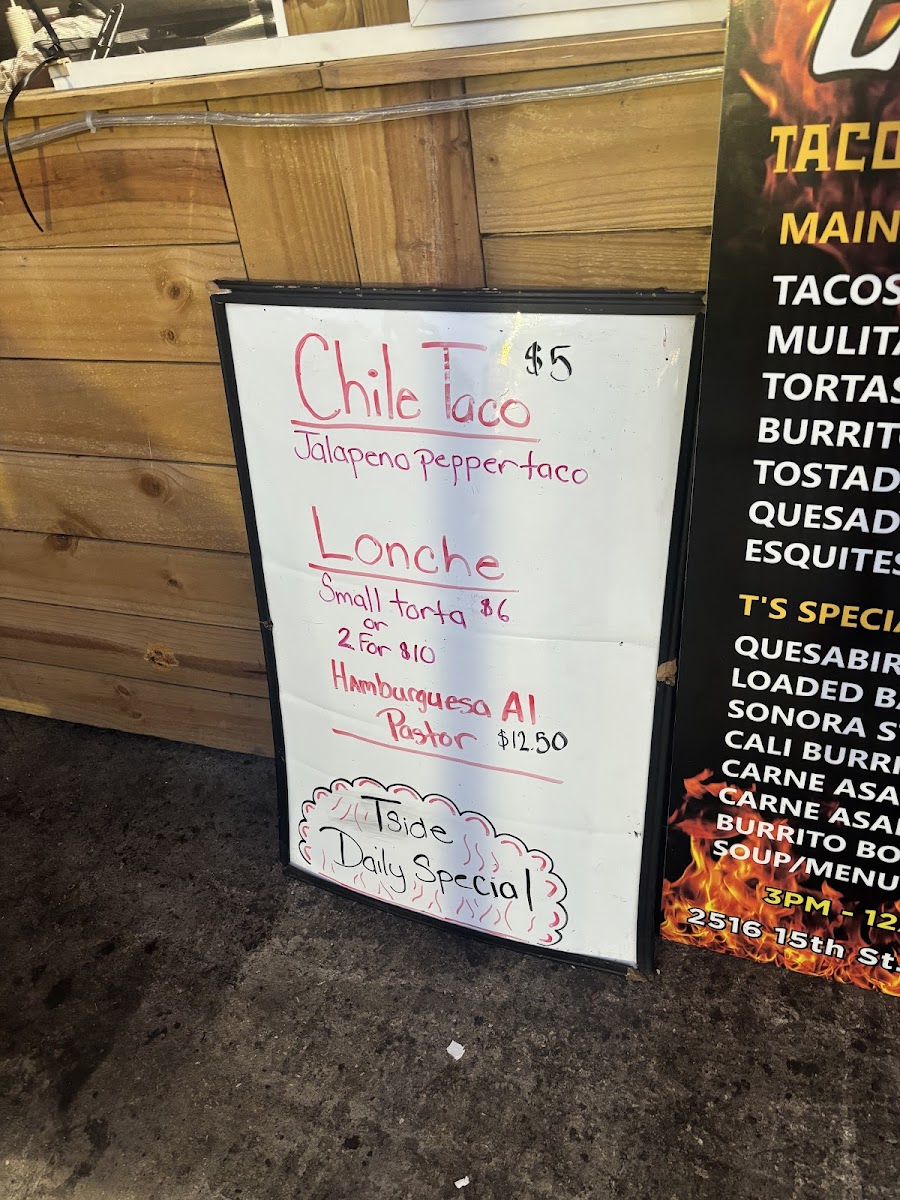 Chile Taco $5
Jalapeno pepper taco
Lonche
Small torta $6
or
2 For $10
Hamburguesa Al
Pastor $12.50
Tside
Daily Special
TACO
MAIN
TACOS
MULITA
TORTAS
BURRIT
TOSTAD
QUESAD
ESQUITES
T'S SPECIA
QUESABIR
LOADED BA
SONORA S
CALI BURRI
CARNE ASA
CARNE ASA
BURRITO BO
SOUP/MENU
3PM - 12
2516 15th St.